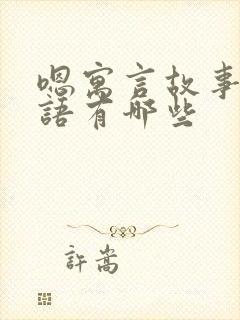 嗯寓言故事
語有哪些
許嵩